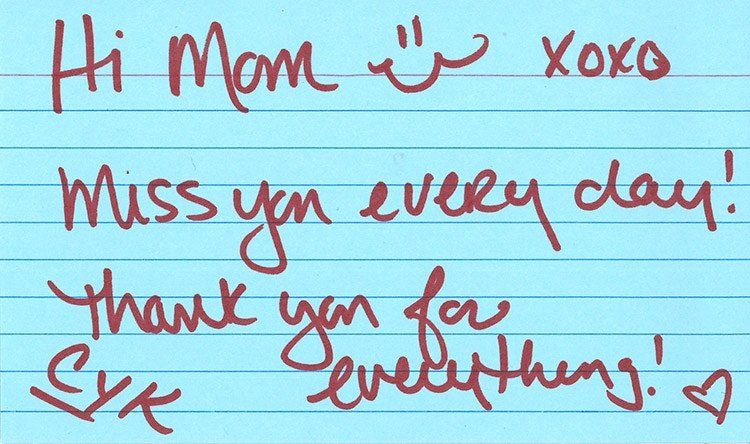 Hi Mom xoxo
Miss you every day!
Thank you for
everything!